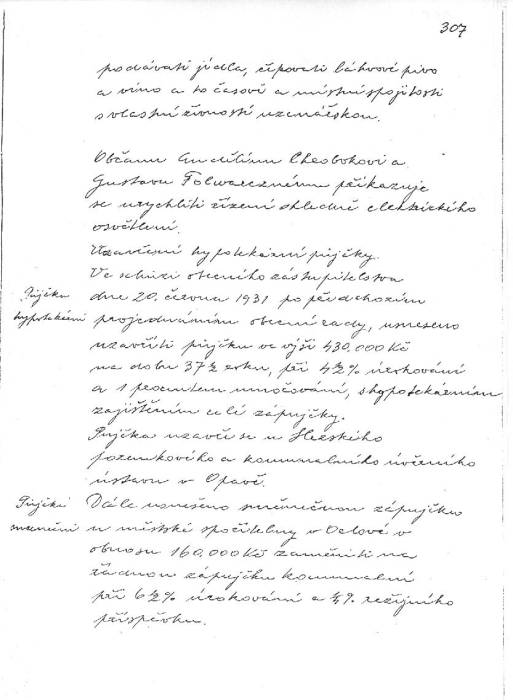 307
podávati jídla, čepovati láhvové pivo
a víno a to časové a místní spojitosti
s vlastní živností uzenářskou.
Občanu Chrobokovi a
Gustavu Folwarcznému přikazuje
se urychliti zřízení ohledně elektrického
osvětlení.
Uzavření hypotekární půjčky.
Ve schůzi obecního zastupitelstva
Půjčka
hypotekární
dne 20. června 1931 po předchozím
projednáním obecní rady, usneseno
uzavříti půjčku ve výši 430.000 Kč
na dobu 37½ roku, při 4½% úrokování
a 1 procentem umořování, s hypotekárním
zajištěním celé zápujčky.
Půjčka uzavře se u Slezského
pozemkového a komunálního úvěrního
ústavu v Opavě.
Půjčka
směneční
Dále usneseno směnečnou zápujčku
u městské spořitelny v Orlové v
obnosu 160.000 Kč zaměniti na
řádnou zápujčku komunální
při 6½% úrokování a ¼% režijního
příspěvku.